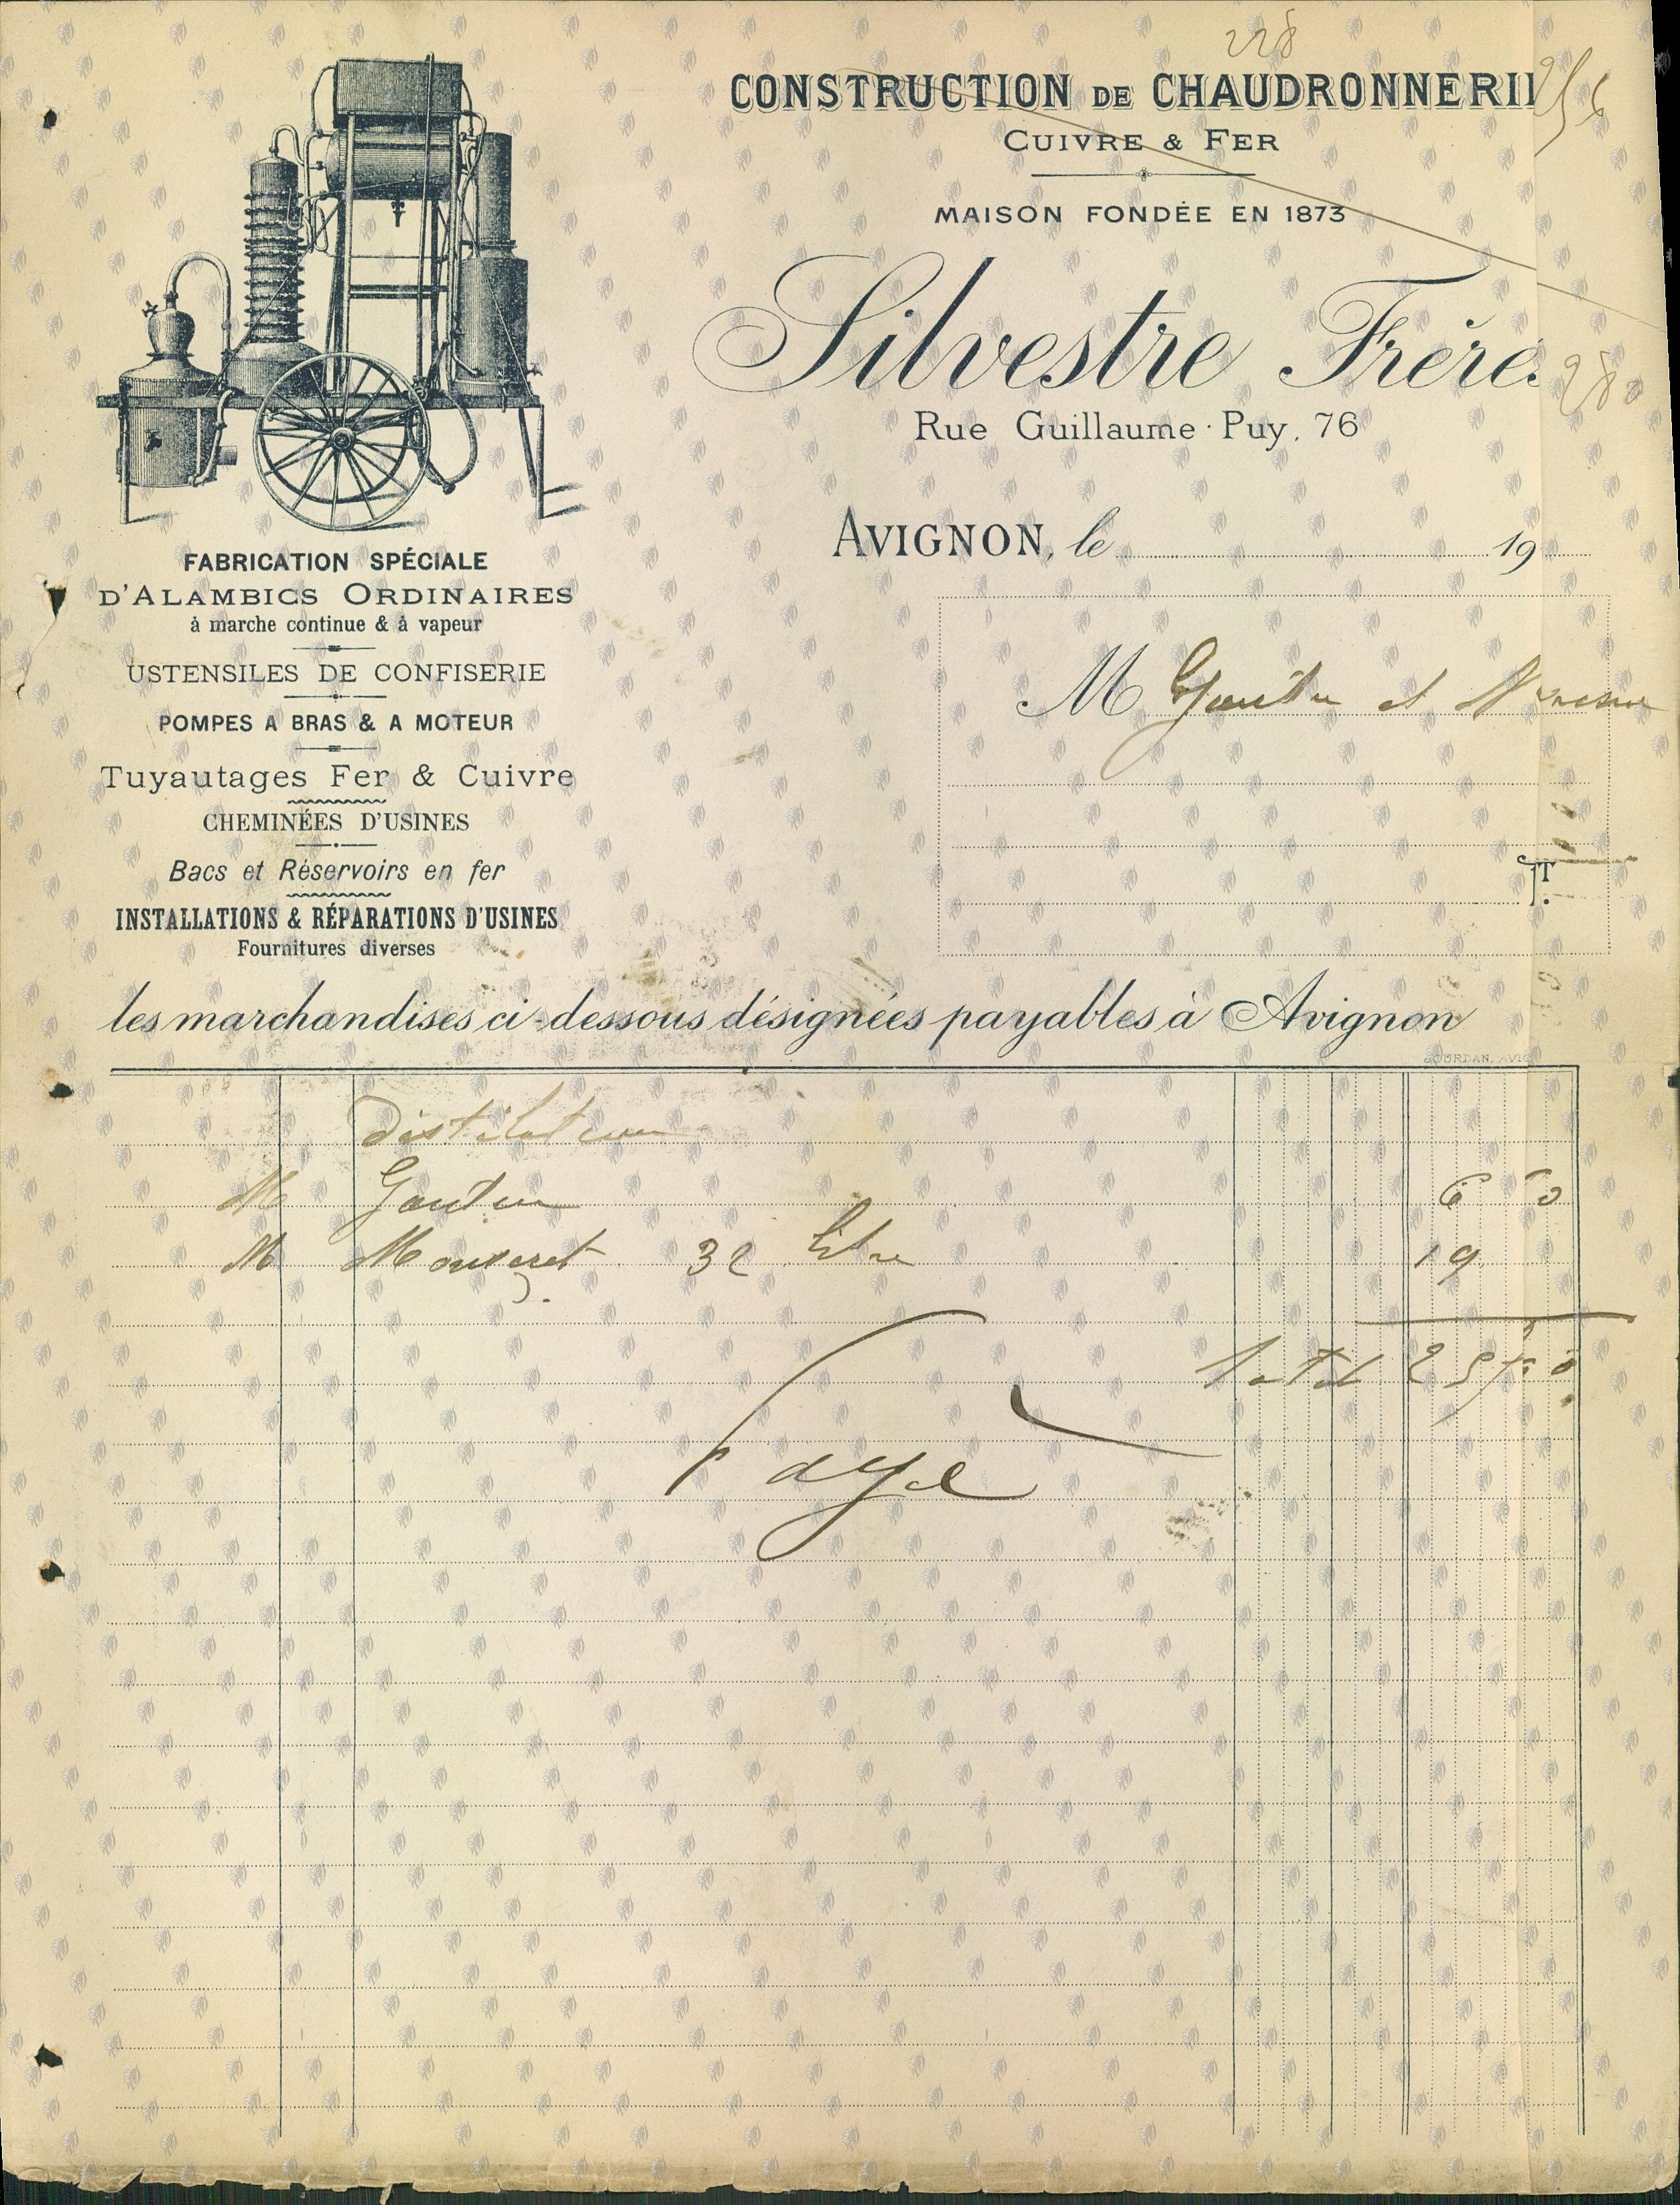 228
CONSTRUCTION DE CHAUDRONNERIE
256
CUIVRE & FER
MAISON FONDÉE EN 1873
Silvestre Frères
280
Rue Guillaume-Puy, 76
AVIGNON, le 19
FABRICATION SPÉCIALE
D'ALAMBICS ORDINAIRES
à marche continue & à vapeur
USTENSILES DE CONFISERIE
POMPES A BRAS & A MOTEUR
Tuyautages Fer & Cuivre
CHEMINÉES D'USINES
Bacs et Réservoirs en fer
INSTALLATIONS & RÉPARATIONS D'USINES
Fournitures diverses
M et
T.
les marchandises ci-dessous désignées payables à Avignon
JOURDAN, AVIG
Distilateur
M 6 50
M 32 litre 19
Total 25,50
Payé